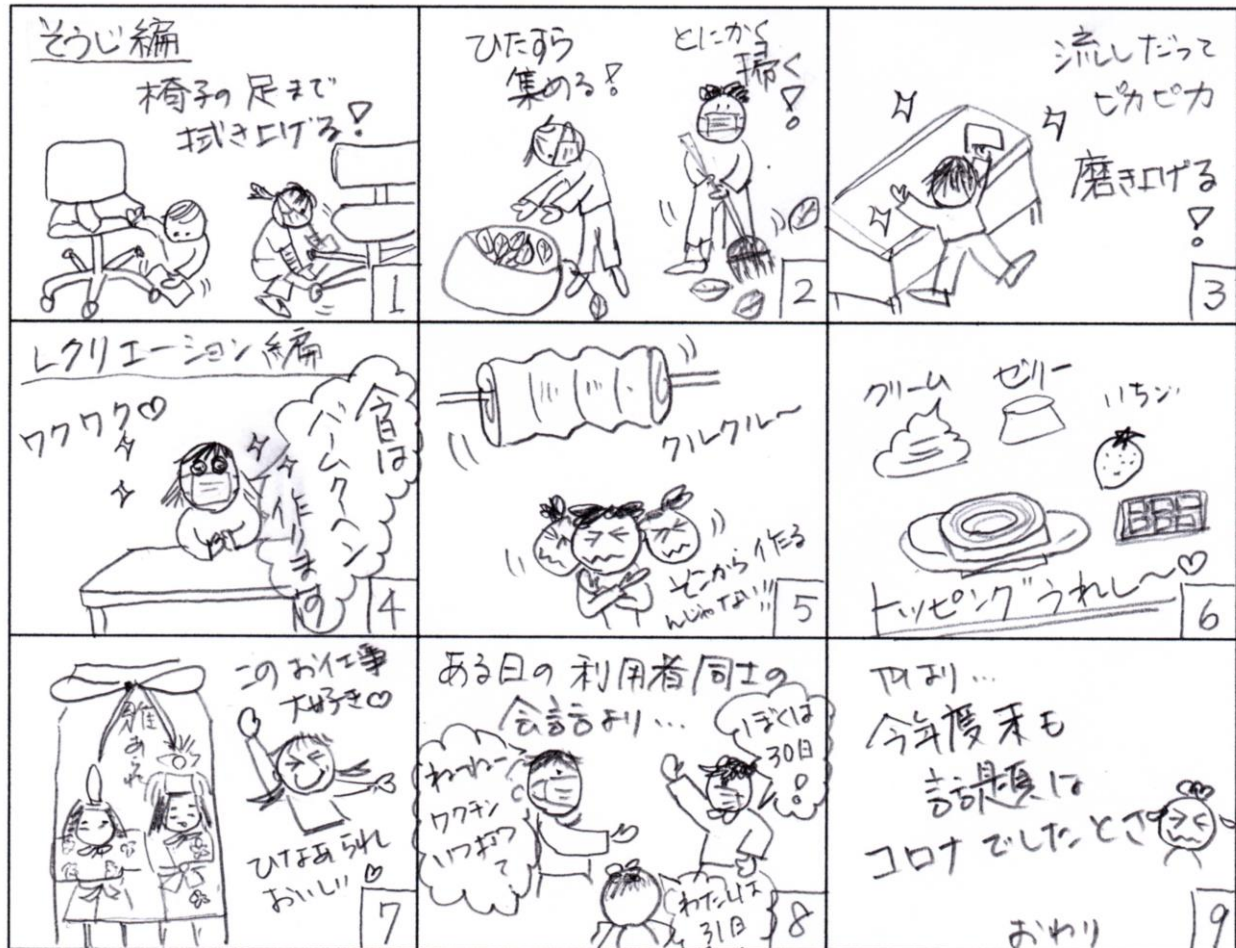 そうじ編
椅子の足まで
拭き上げる!
1
ひたすら
集める!
とにかく
掃く!
2
流しだって
ピカピカ
磨き上げる!
3
レクリエーション編
ワクワク♡
今日は
バームクーヘン
作ります
4
クルクル〜
そこから作る
んじゃない!!
5
クリーム
ゼリー
いちご
トッピングうれし〜♡
6
雛あられ
このお仕事
大好き♡
ひなあられ
おいしい♡
7
ある日の利用者同士の
会話より…
ねーねー
ワクチン
いつおわっ
て?
ぼくは
30日!
わたしは
31日
8
やはり…
今年度末も
話題は
コロナでしたとさ
おわり
9